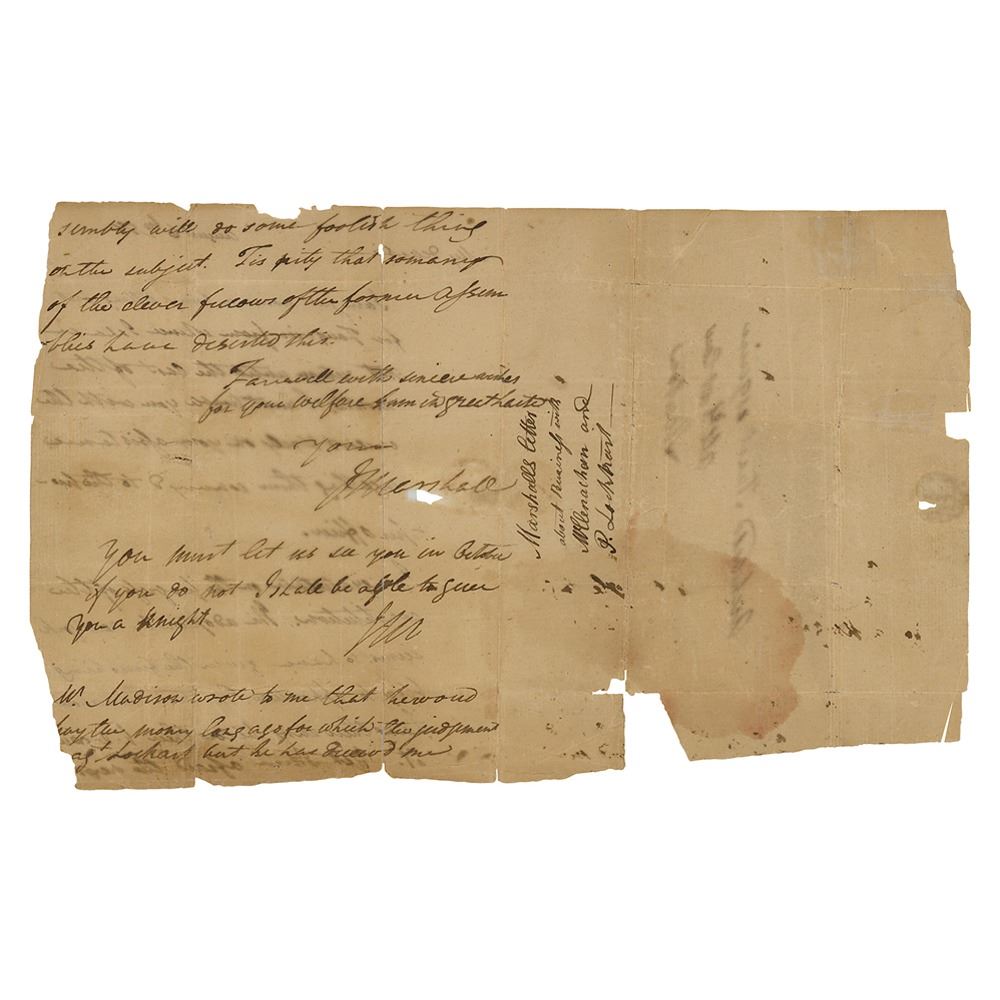 sembly will do some foolish thing
on the subject. Tis pity that so many
of the clever fellows of the former Assem
blies have deserted this.
Farewell with sincere wishes
for your welfare I am in great haste
Yours
J Marshall
You must let us see you in October
if you do not I shall be able to give
you a Knight
JM
Mr. Madison wrote to me that he woud
pay the money long ago for which the judgement
agt Lockart but he has deceivd me
Marshalls letter
about business with
McClenachan and
P. Lockhart